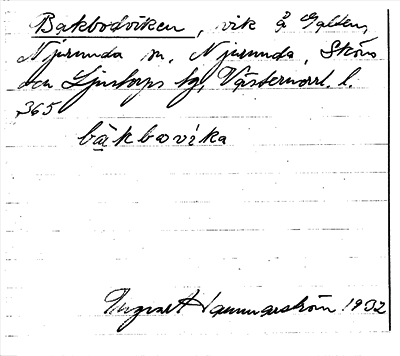 Bakbodviken, vik å Galten,
Njurunda sn, Njurunda, Sköns
och Ljustorps tg, Västernorrl. l.
365
bàkbovika
Ingvar Hammarström 1932